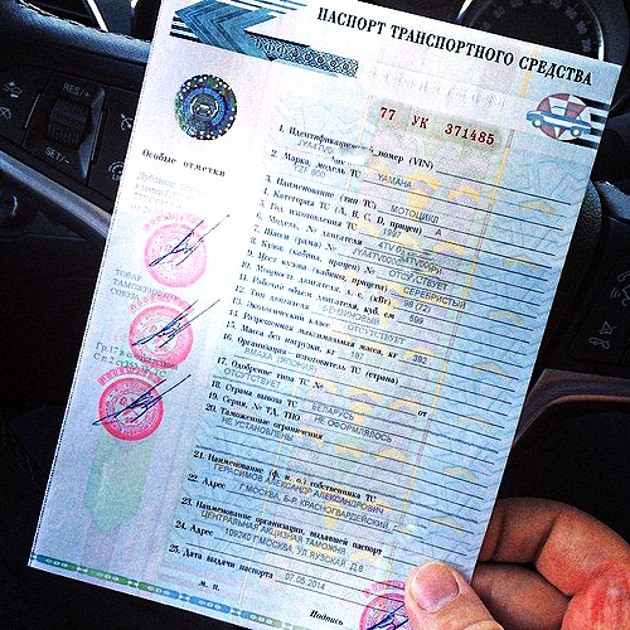 ПАСПОРТ ТРАНСПОРТНОГО СРЕДСТВА
77 УК 371485
RES/+
SET/-
Особые отметки
ТОВАР
ТАМОЖЕННОГО
СОЮЗА
1. Идентификационный номер (VIN)
2. Марка, модель ТС YAMAHA
YZF 600
3. Наименование (тип ТС) МОТОЦИКЛ
4. Категория ТС (A, B, C, D, прицеп) A
5. Год изготовления ТС 1997
6. Модель, № двигателя 4TV
7. Шасси (рама) №
8. Кузов (кабина, прицеп) № ОТСУТСТВУЕТ
9. Цвет кузова (кабины, прицепа) СЕРЕБРИСТЫЙ
10. Мощность двигателя, л. с. (кВт) 98 (72)
11. Рабочий объем двигателя, куб. см 599
12. Тип двигателя БЕНЗИНОВЫЙ
13. Экологический класс ОТСУТСТВУЕТ
14. Разрешенная максимальная масса, кг 392
15. Масса без нагрузки, кг 187
16. Организация-изготовитель ТС (страна)
ЯМАХА (ЯПОНИЯ)
17. Одобрение типа ТС № от
ОТСУТСТВУЕТ
18. Страна вывоза ТС БЕЛАРУСЬ
19. Серия, № ТД, ТПО НЕ ОФОРМЛЯЛОСЬ
20. Таможенные ограничения
НЕ УСТАНОВЛЕНЫ
21. Наименование (ф. и. о.) собственника ТС
ГЕРАСИМОВ АЛЕКСАНДР АЛЕКСАНДРОВИЧ
22. Адрес Г.МОСКВА, Б-Р. КРАСНОГВАРДЕЙСКИЙ
23. Наименование организации, выдавшей паспорт
ЦЕНТРАЛЬНАЯ АКЦИЗНАЯ ТАМОЖНЯ
24. Адрес 109240 Г.МОСКВА, УЛ ЯУЗСКАЯ, Д.8
25. Дата выдачи паспорта 07.05.2014
М. П.
Подпись